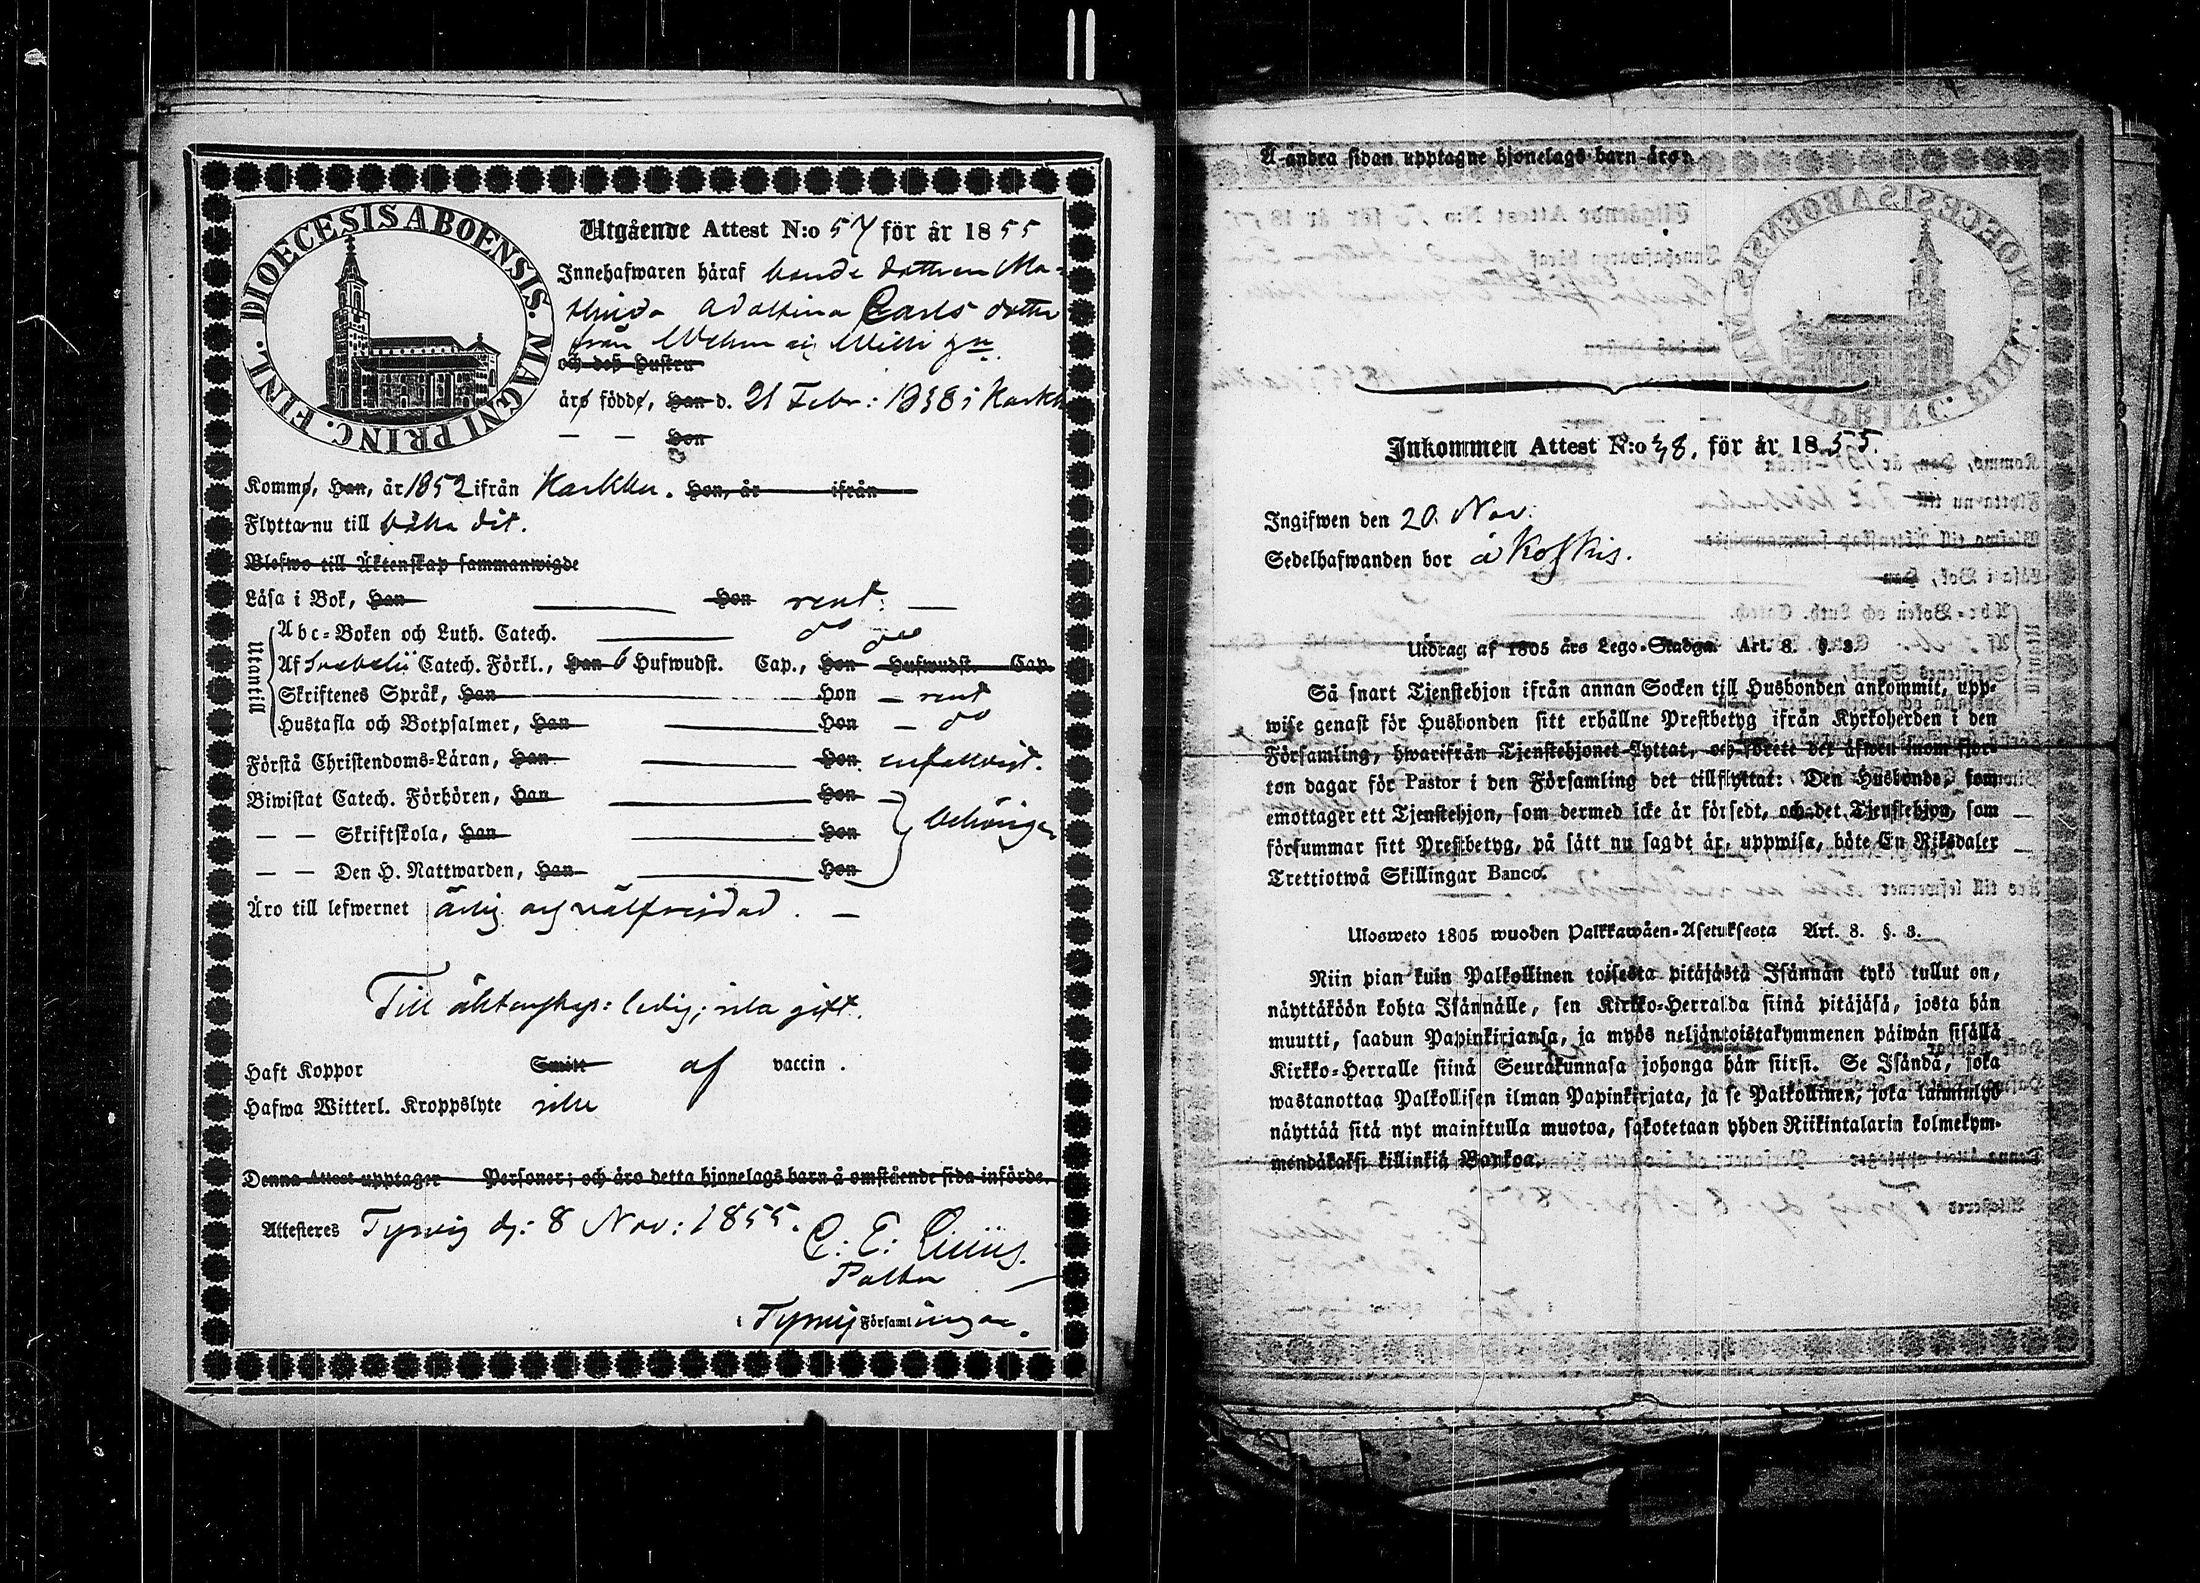 DIOECESIS ABOENSIS. MAGNI PRINC. FINL.
Utgående Attest N:o 57 för år 1855
Innehafwaren häraf bonde dottren Ma-
thilda Adolfina Carls dotter
från
och deß Hustru
äro födde, Han d. 21 Febr: 1838 i Karkku
— — Hon
Komme, Han, år 1852 ifrån Karkku. Hon, år ifrån
Flytta nu till båka dit.
Blefwo till Äktenskap sammanwigde
Läsa i Bok, Han Hon rent. —
Utantill
Abc-Boken och Luth. Catech. do
Af Svebelii Catech. Förkl., Han 6 Hufwudst. Cap., Hon Hufwudst. Cap.
Skriftenes Språk, Han Hon — rent
Hustafla och Botpsalmer, Han Hon — do
Förstå Christendoms-Läran, Han Hon enfaldigt.
Biwistat Catech. Förhören, Han Hon —
— — Skriftskola, Han Hon behörigen
— — Den H. Nattwarden, Han Hon
Äro till lefwernet ärlig och välfrejdad. —
Till äktenskap: ledig; icke gift.
Haft Koppor Smitt af vaccin.
Hafwa Witterl. Kroppslyte icke
Denna Attest upptager Personer; och äro detta hjonelags barn å omstående sida införde.
Attesteres Tyrvis d: 8 Nov: 1855.
C: E: Lilius.
Pastor
i Tyrvis Församlingar.
Å andra sidan upptagne hjonelags barn äro:
Inkommen Attest N:o 38. för år 1855.
Ingifwen den 20. Nov:
Sedelhafwanden bor å Koskis.
Utdrag af 1805 års Lego-Stadga Art. 8. §. 3.
Så snart Tjenstehjon ifrån annan Socken till Husbonden ankommit, upp-
wise genast för Husbonden sitt erhållne Prestbetyg ifrån Kyrkoherden i den
Församling, hwarifrån Tjenstehjonet flyttat, och förete det äfwen inom fjor-
ton dagar för Pastor i den Församling det tillflyttat: Den Husbonde, som
emottager ett Tjenstehjon, som dermed icke är försedt, och det Tjenstehjon, som
försummar sitt Prestbetyg, på sätt nu sagdt är, uppwisa, böte En Riksdaler
Trettiotwå Skillingar Banco.
Ulosweto 1805 wuoden Palkkawäen-Asetuksesta Art. 8. §. 3.
Niin pian kuin Palkollinen toisesta pitäjästä Isännän tykö tullut on,
näyttäköön kohta Isännälle, sen Kirkko-Herralda siinä pitäjäsä, josta hän
muutti, saadun Papinkirjansa, ja myös neljäntoistakymmenen päiwän sisällä
Kirkko-Herralle siinä Seurakunnasa johonga hän siirsi. Se Isändä, joka
wastanottaa Palkollisen ilman Papinkirjata, ja se Palkollinen, joka laiminlyö
näyttää sitä nyt mainitulla muotoa, sakotetaan yhden Riikintalarin kolmekym-
mendäkaksi killinkiä Bankoa.